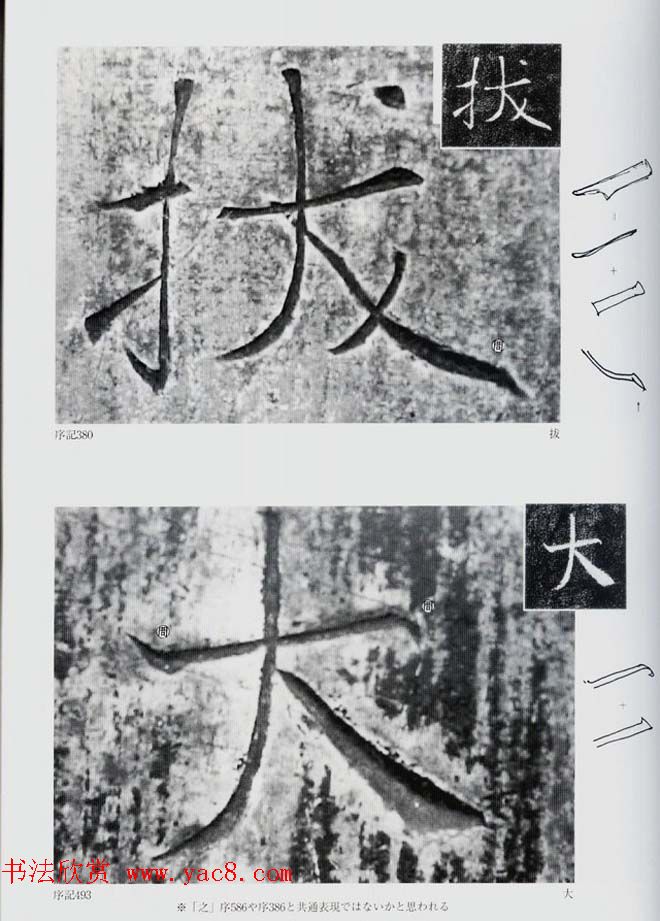 拔
拔
間
序記380
拔
大
大
間
間
书法欣赏 www.yac8.com
序記493
大
※「之」序586や序386と共通表現ではないかと思われる